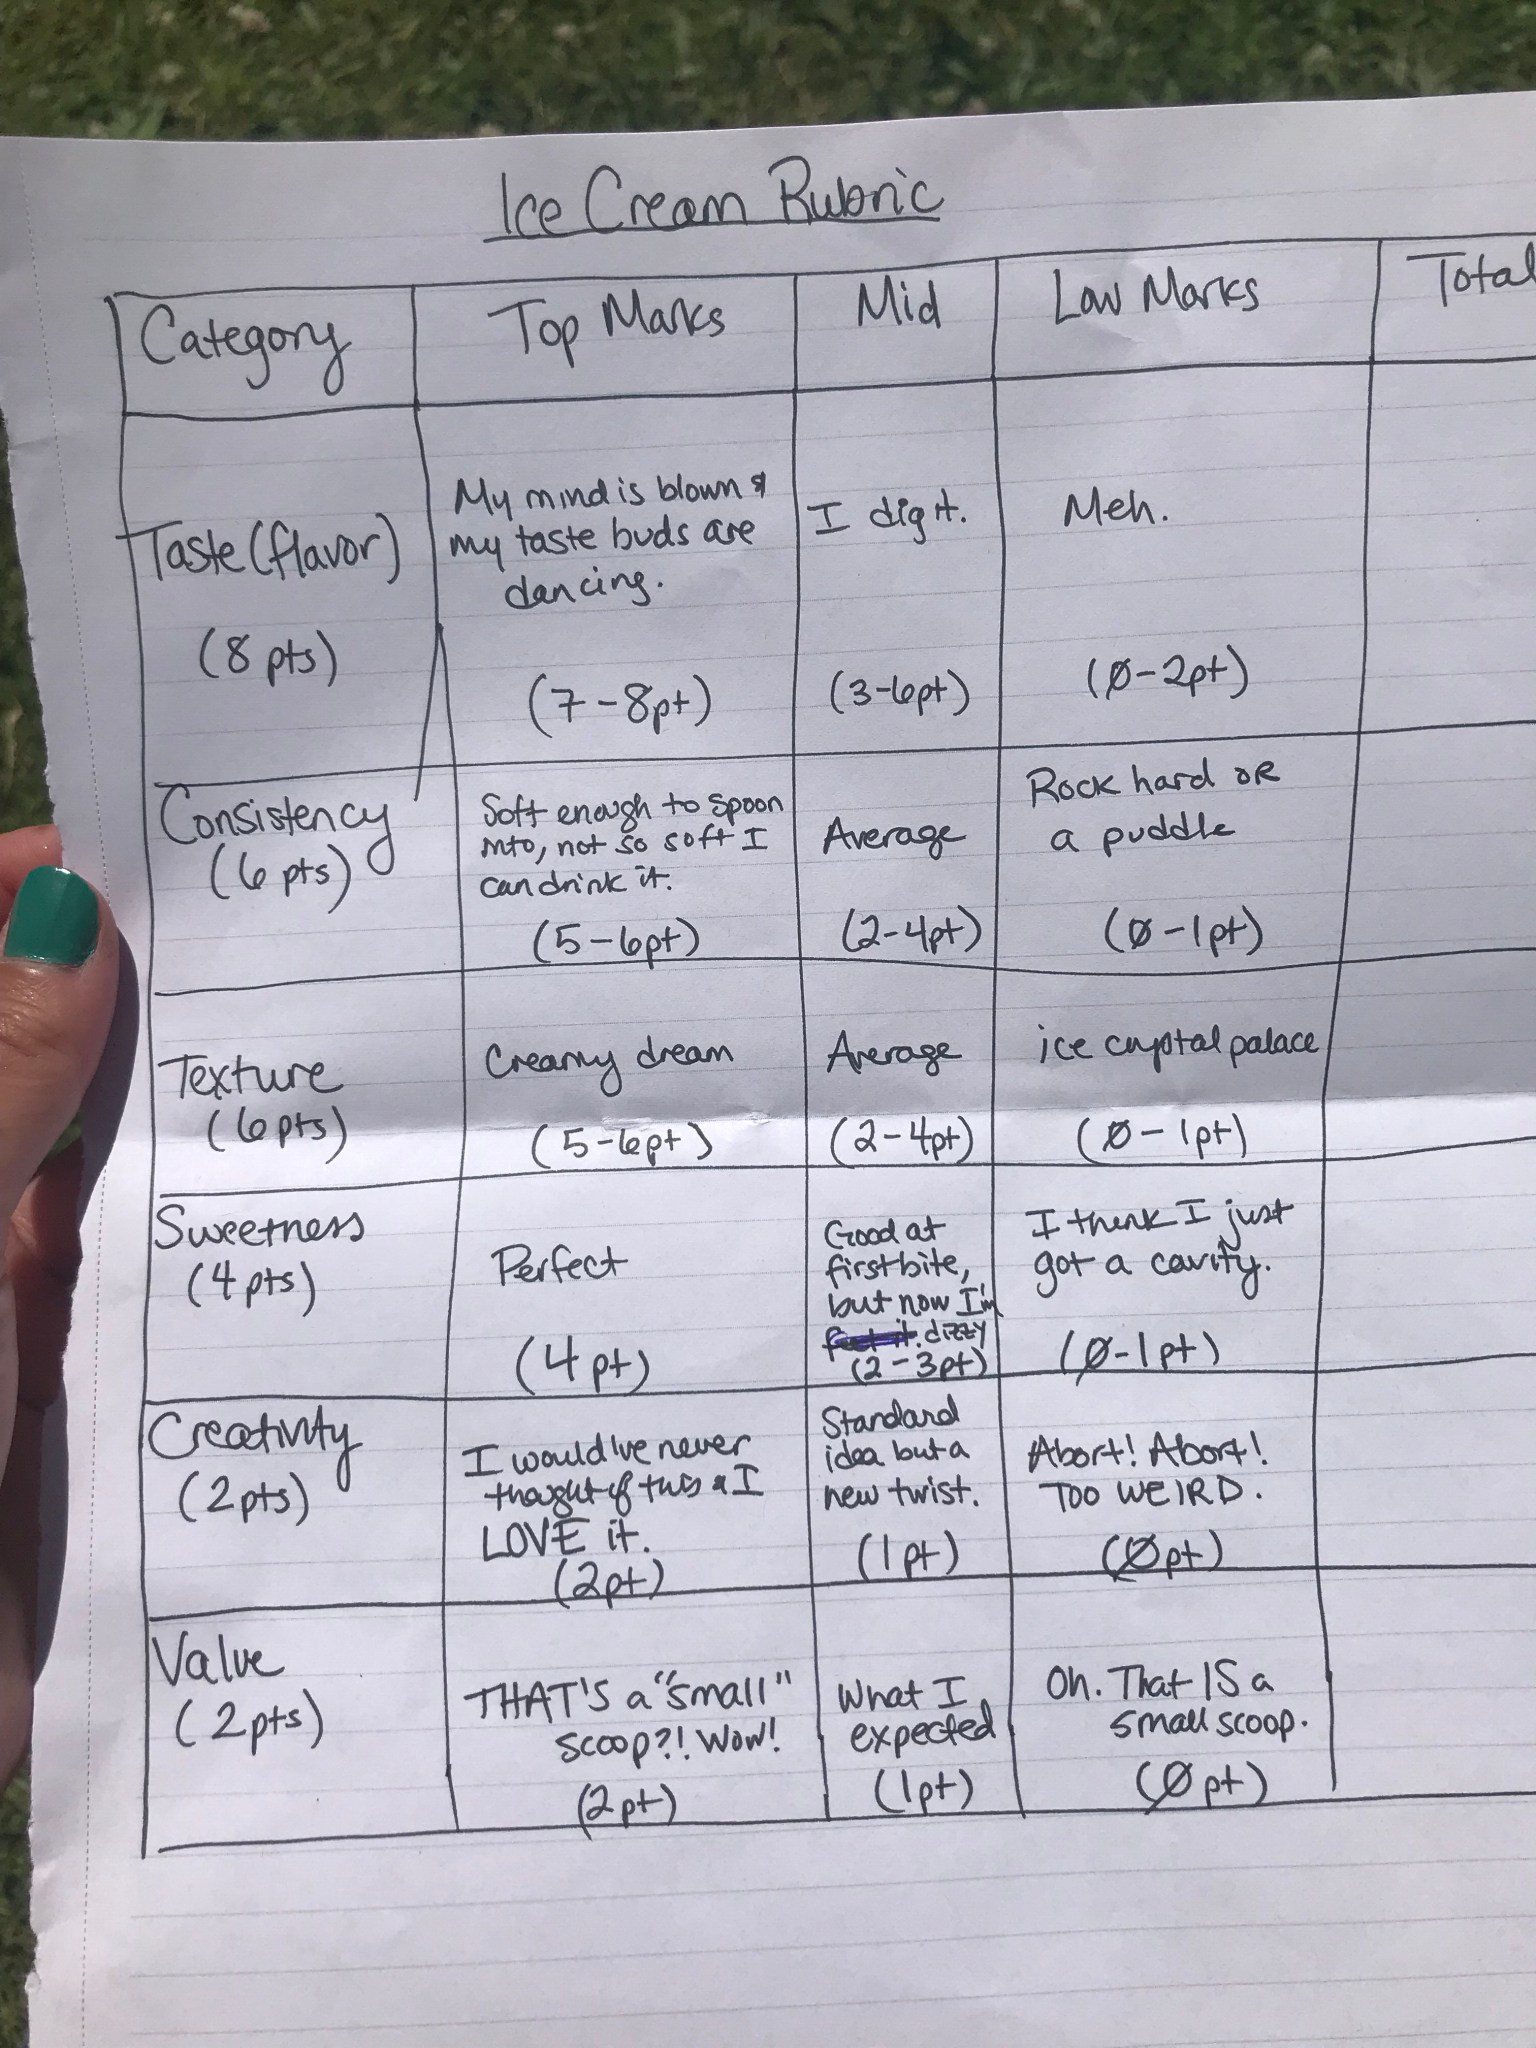 Ice Cream Rubric
Category
Top Marks
Mid
Low Marks
Total
Taste (flavor)
(8 pts)
My mind is blown &
my taste buds are
dancing.
(7-8pt)
I dig it.
(3-6pt)
Meh.
(Ø-2pt)
Consistency
(6 pts)
Soft enough to spoon
into, not so soft I
can drink it.
(5-6pt)
Average
(2-4pt)
Rock hard OR
a puddle
(Ø-1pt)
Texture
(6pts)
Creamy dream
(5-6pt)
Average
(2-4pt)
ice crystal palace
(Ø-1pt)
Sweetness
(4pts)
Perfect
(4pt)
Good at
first bite,
but now I'm
dizzy
(2-3pt)
I think I just
got a cavity.
(Ø-1pt)
Creativity
(2pts)
I would've never
thought of this & I
LOVE it.
(2pt)
Standard
idea but a
new twist.
(1pt)
Abort! Abort!
TOO WEIRD.
(Øpt)
Value
(2pts)
THAT'S a "small"
scoop?! Wow!
(2pt)
What I
expected
(1pt)
Oh. That IS a
small scoop.
(Øpt)